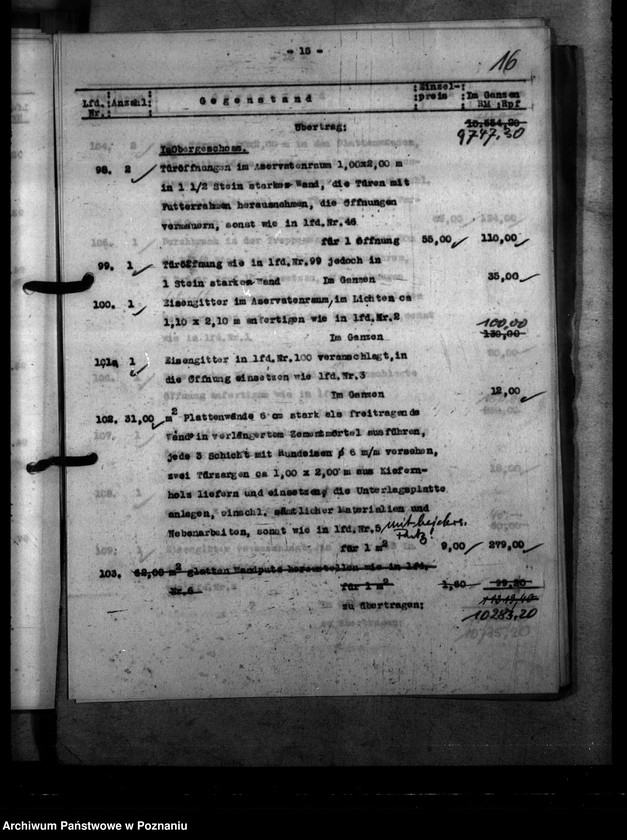 - 15 -
16
Lfd. Nr. Anzahl: Gegenstand Einzel-preis Im Ganzen RM Rpf
Übertrag: 10.554,20
9747.30
Im Obergeschoss.
98. 2 Türöffnungen im Aservatenraum 1,00x2,00 m
in 1 1/2 Stein starker Wand, die Türen mit
Futterrahmen herausnehmen, die Öffnungen
vermauern, sonst wie in lfd.Nr.46
für 1 Öffnung 55,00 110,00
99. 1 Türöffnung wie in lfd.Nr.99 jedoch in
1 Stein starken Wand Im Ganzen 35,00
100. 1 Eisengitter im Aservatenraum, im Lichten ca
1,10 x 2,10 m anfertigen wie in lfd.Nr.2
100,00
Im Ganzen 130,00
101a 1 Eisengitter in lfd.Nr.100 veranschlagt, in
die Öffnung einsetzen wie lfd.Nr.3
Im Ganzen 12,00
102. 31,00 m² Plattenwände 6 cm stark als freitragende
Wand in verlängertem Zementmörtel ausführen,
jede 3 Schicht mit Rundeisen ∅ 6 m/m versehen,
zwei Türzargen ca 1,00 x 2,00 m aus Kiefern-
holz liefern und einsetzen, die Unterlagsplatte
anlegen, einschl. sämtlicher Materialien und
Nebenarbeiten, sonst wie in lfd.Nr.5
für 1 m² 9,00 279,00
103. 62,00 m² glatten Wandputz herstellen wie in lfd.
Nr.6 für 1 m² 1,60 99,20
zu übertragen:
10283,20
Archiwum Państwowe w Poznaniu